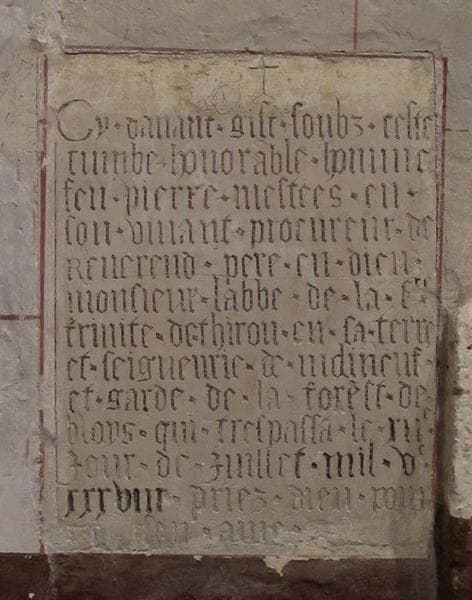 Cy · davant · gist · soubz · ceste
tumbe · honorable · homme
feu · pierre · mestees · en ·
son · vivant · procureur · de
Reverend · pere · en · dieu ·
monsieur · labbe · de · la · s^te
trinite · de · thirou · en · sa · terre
et · seigneurie · de · ·
et · garde · de · la · forest · de
bloys · qui · trespassa · le · xii^e
Jour · de · Juillet · mil · v^c
xxxviii · priez · dieu · pour
son · ame ·